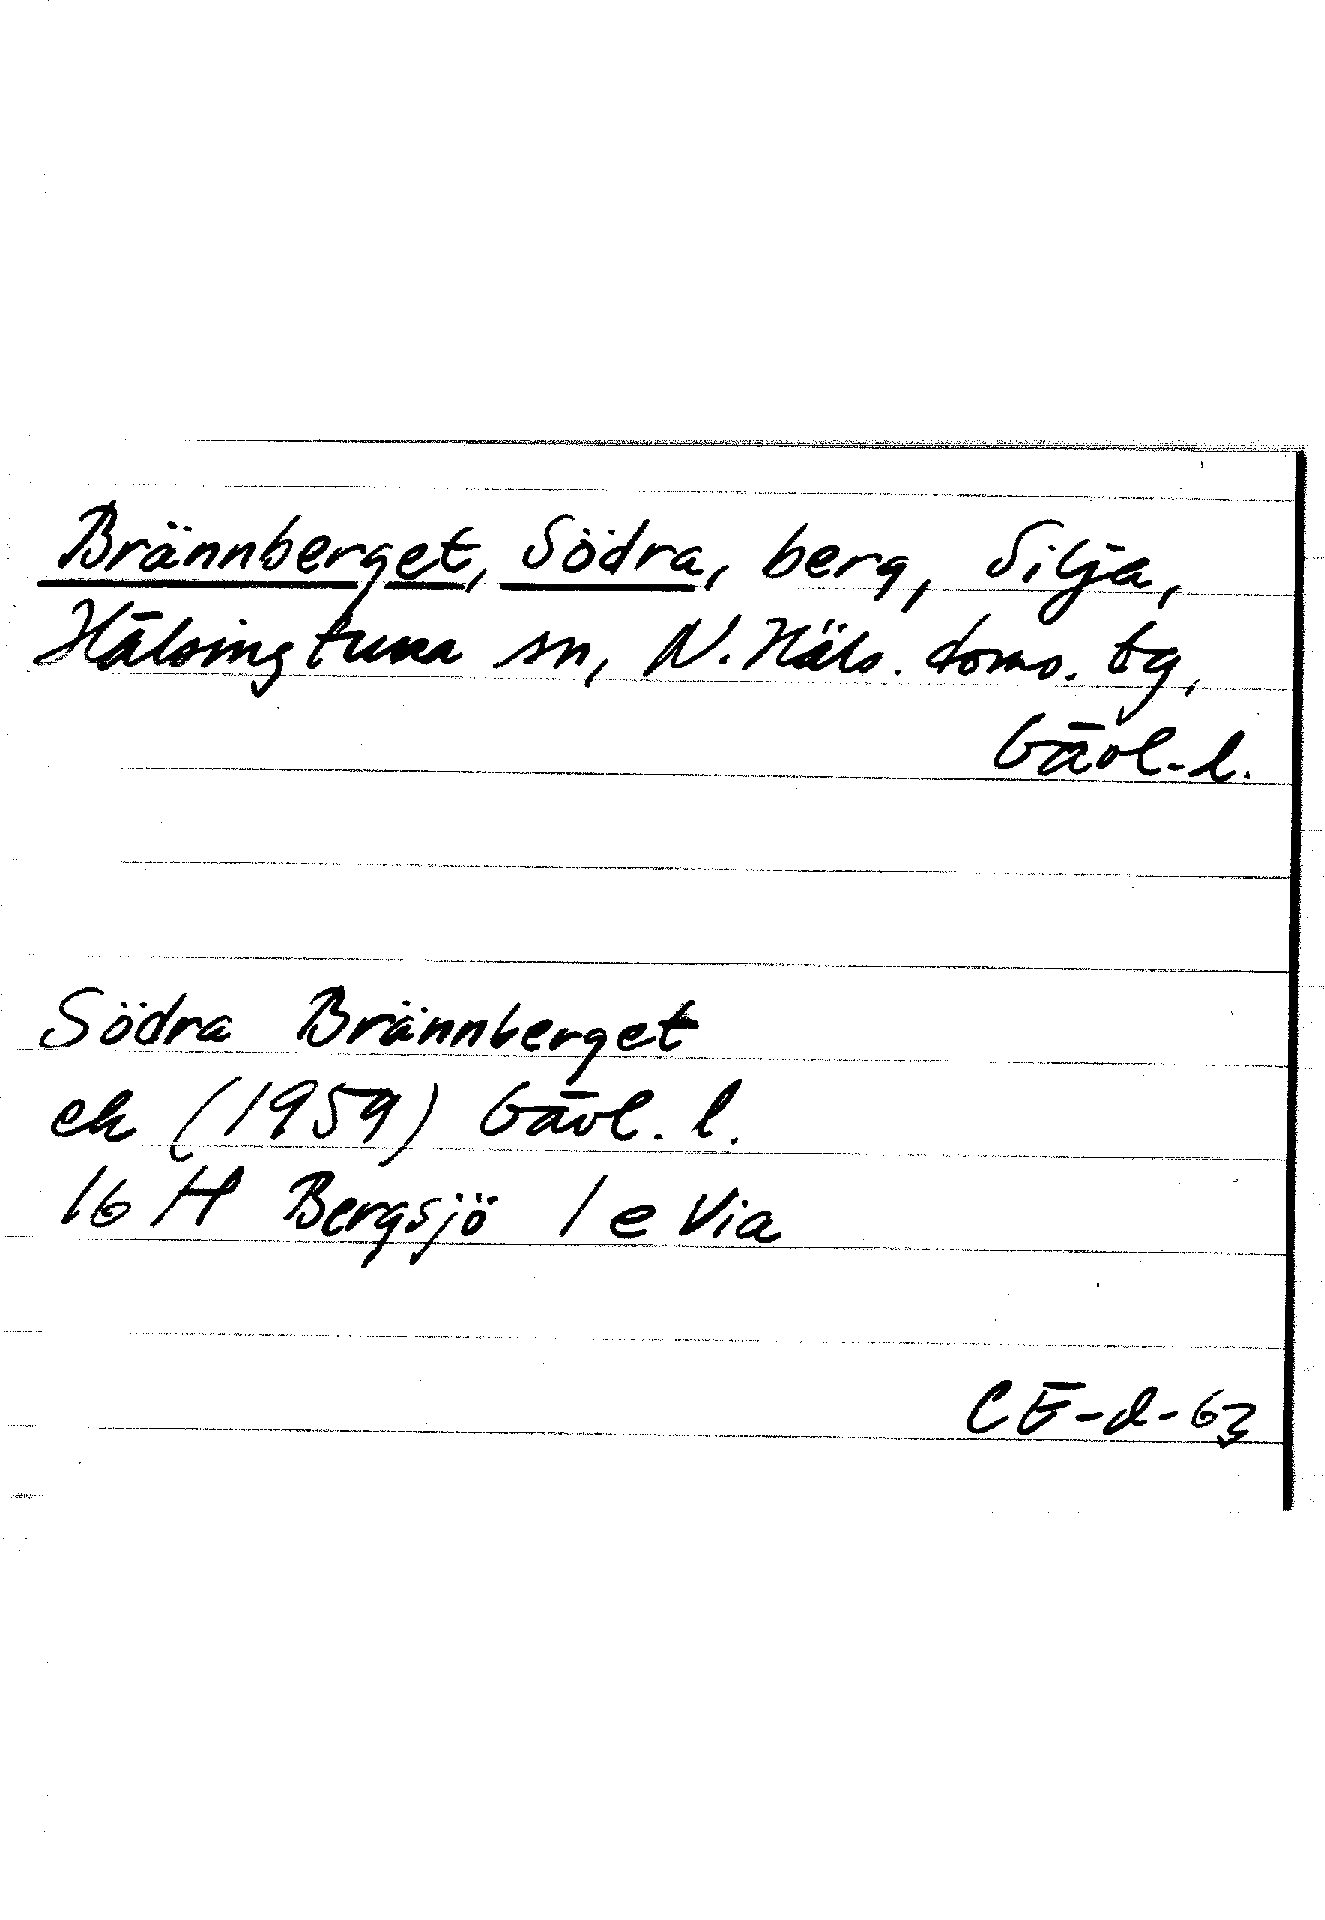 Brännberget, Södra, berg, Silja,
Hälsingtuna sn, N. Häls. doms. tg,
Gävl-l.
Södra Brännberget
ek (1959) Gävl. l.
16 H Bergsjö 1 e Via
CE-d-63